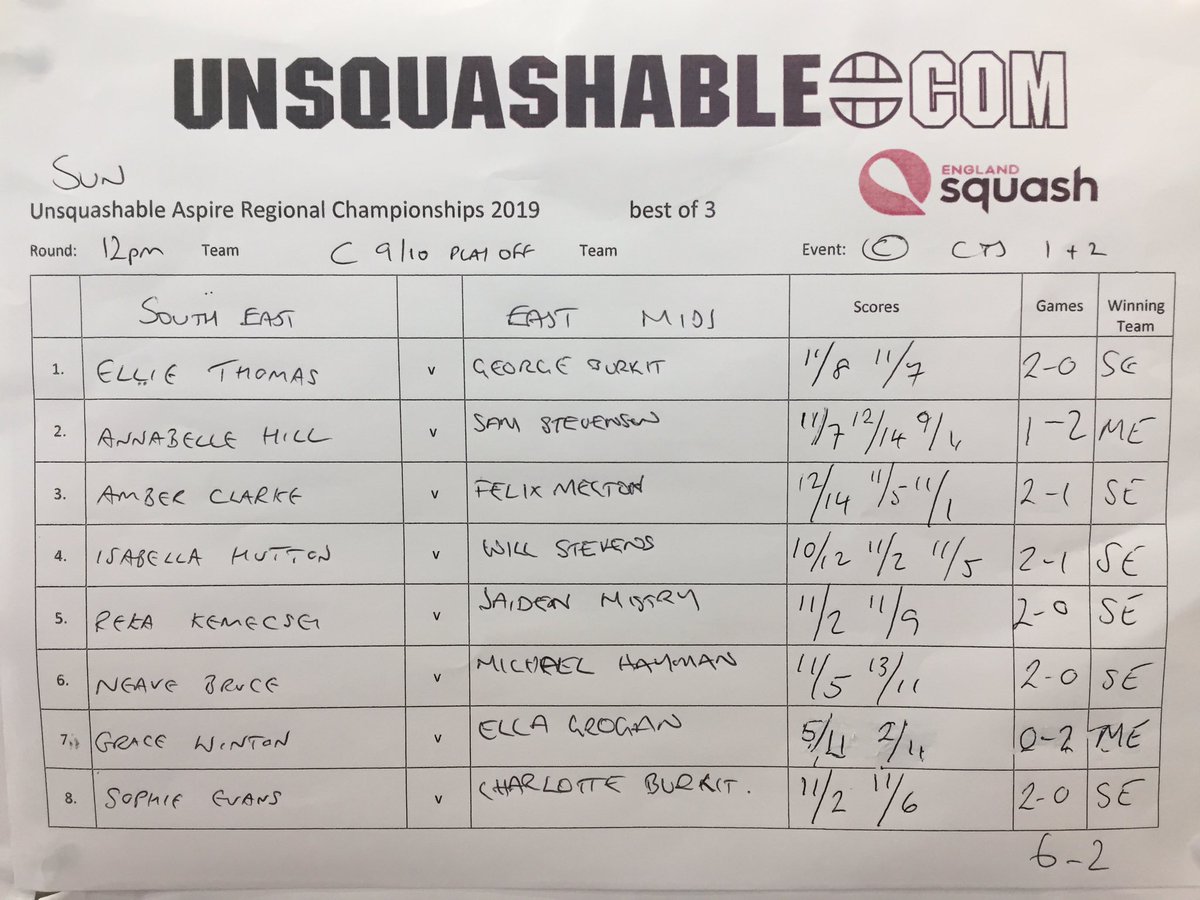 UNSQUASHABLE.COM
SUN
ENGLAND
squash
Unsquashable Aspire Regional Championships 2019 best of 3
Round: 12pm Team C 9/10 PLAY OFF Team Event: C CTS 1 + 2
SOUTH EAST EAST MIDS Scores Games Winning Team
1. ELLIE THOMAS v GEORGE BURKIT 11/8 11/7 2-0 SE
2. ANNABELLE HILL v SAM STEVENSON 11/7 12/14 9/11 1-2 ME
3. AMBER CLARKE v FELIX MELTON 12/14 11/5 11/1 2-1 SE
4. ISABELLA HUTTON v WILL STEVENS 10/12 11/2 11/5 2-1 SE
5. REKA KEMECSEI v JAIDEN MISTRY 11/2 11/9 2-0 SE
6. NEAVE BRUCE v MICHAEL HAYMAN 11/5 13/11 2-0 SE
7. GRACE WINTON v ELLA GROGAN 5/11 2/11 0-2 ME
8. SOPHIE EVANS v CHARLOTTE BURKIT. 11/2 11/6 2-0 SE
6-2